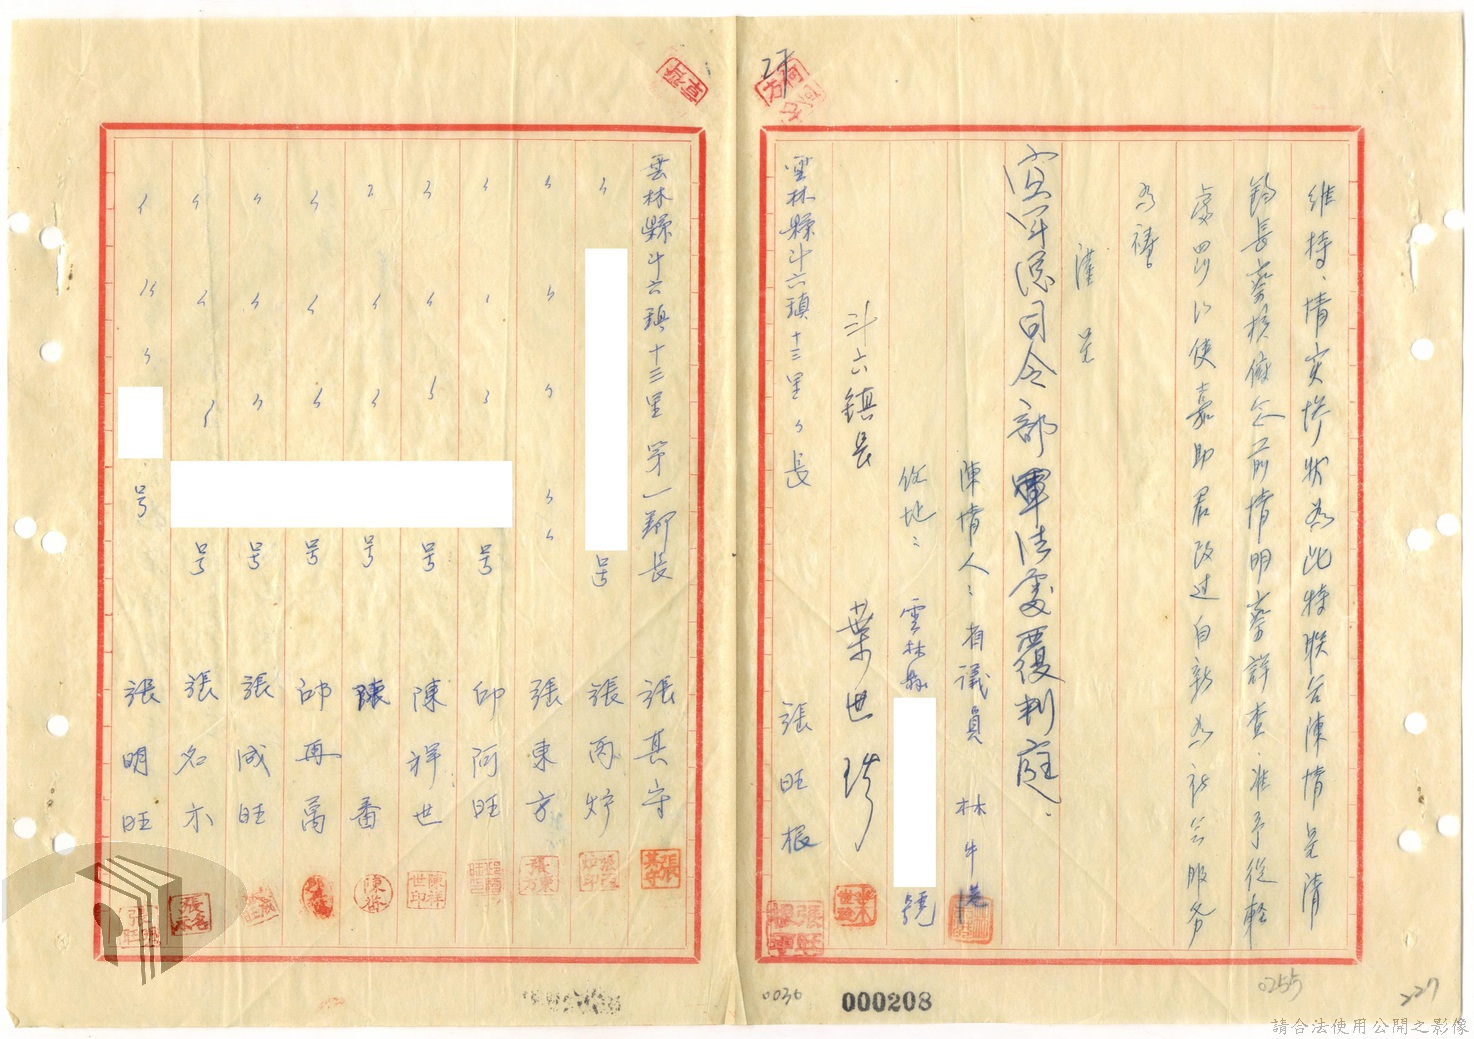 維持、情实惨状為此特联名陳情呈請
鈞長察核俯念前情明察詳查、准予從輕
處罰以使嘉助君改过自新為社会服务
為禱
謹呈
空軍總司令部軍法處覆判庭、
陳情人：省議員 林牛港
住地：雲林縣 號
斗六鎮長 葉世
雲林縣斗六鎮十三里々長 張旺根
雲林縣斗六鎮十三里第一鄰長 張其守
号 張丙炉
張東方
号 邱阿旺
号 陳祥世
号 陳番
号 邱再萬
号 張成旺
号 張名木
号 張明旺
000208
0036
0255
227
請合法使用公開之影像